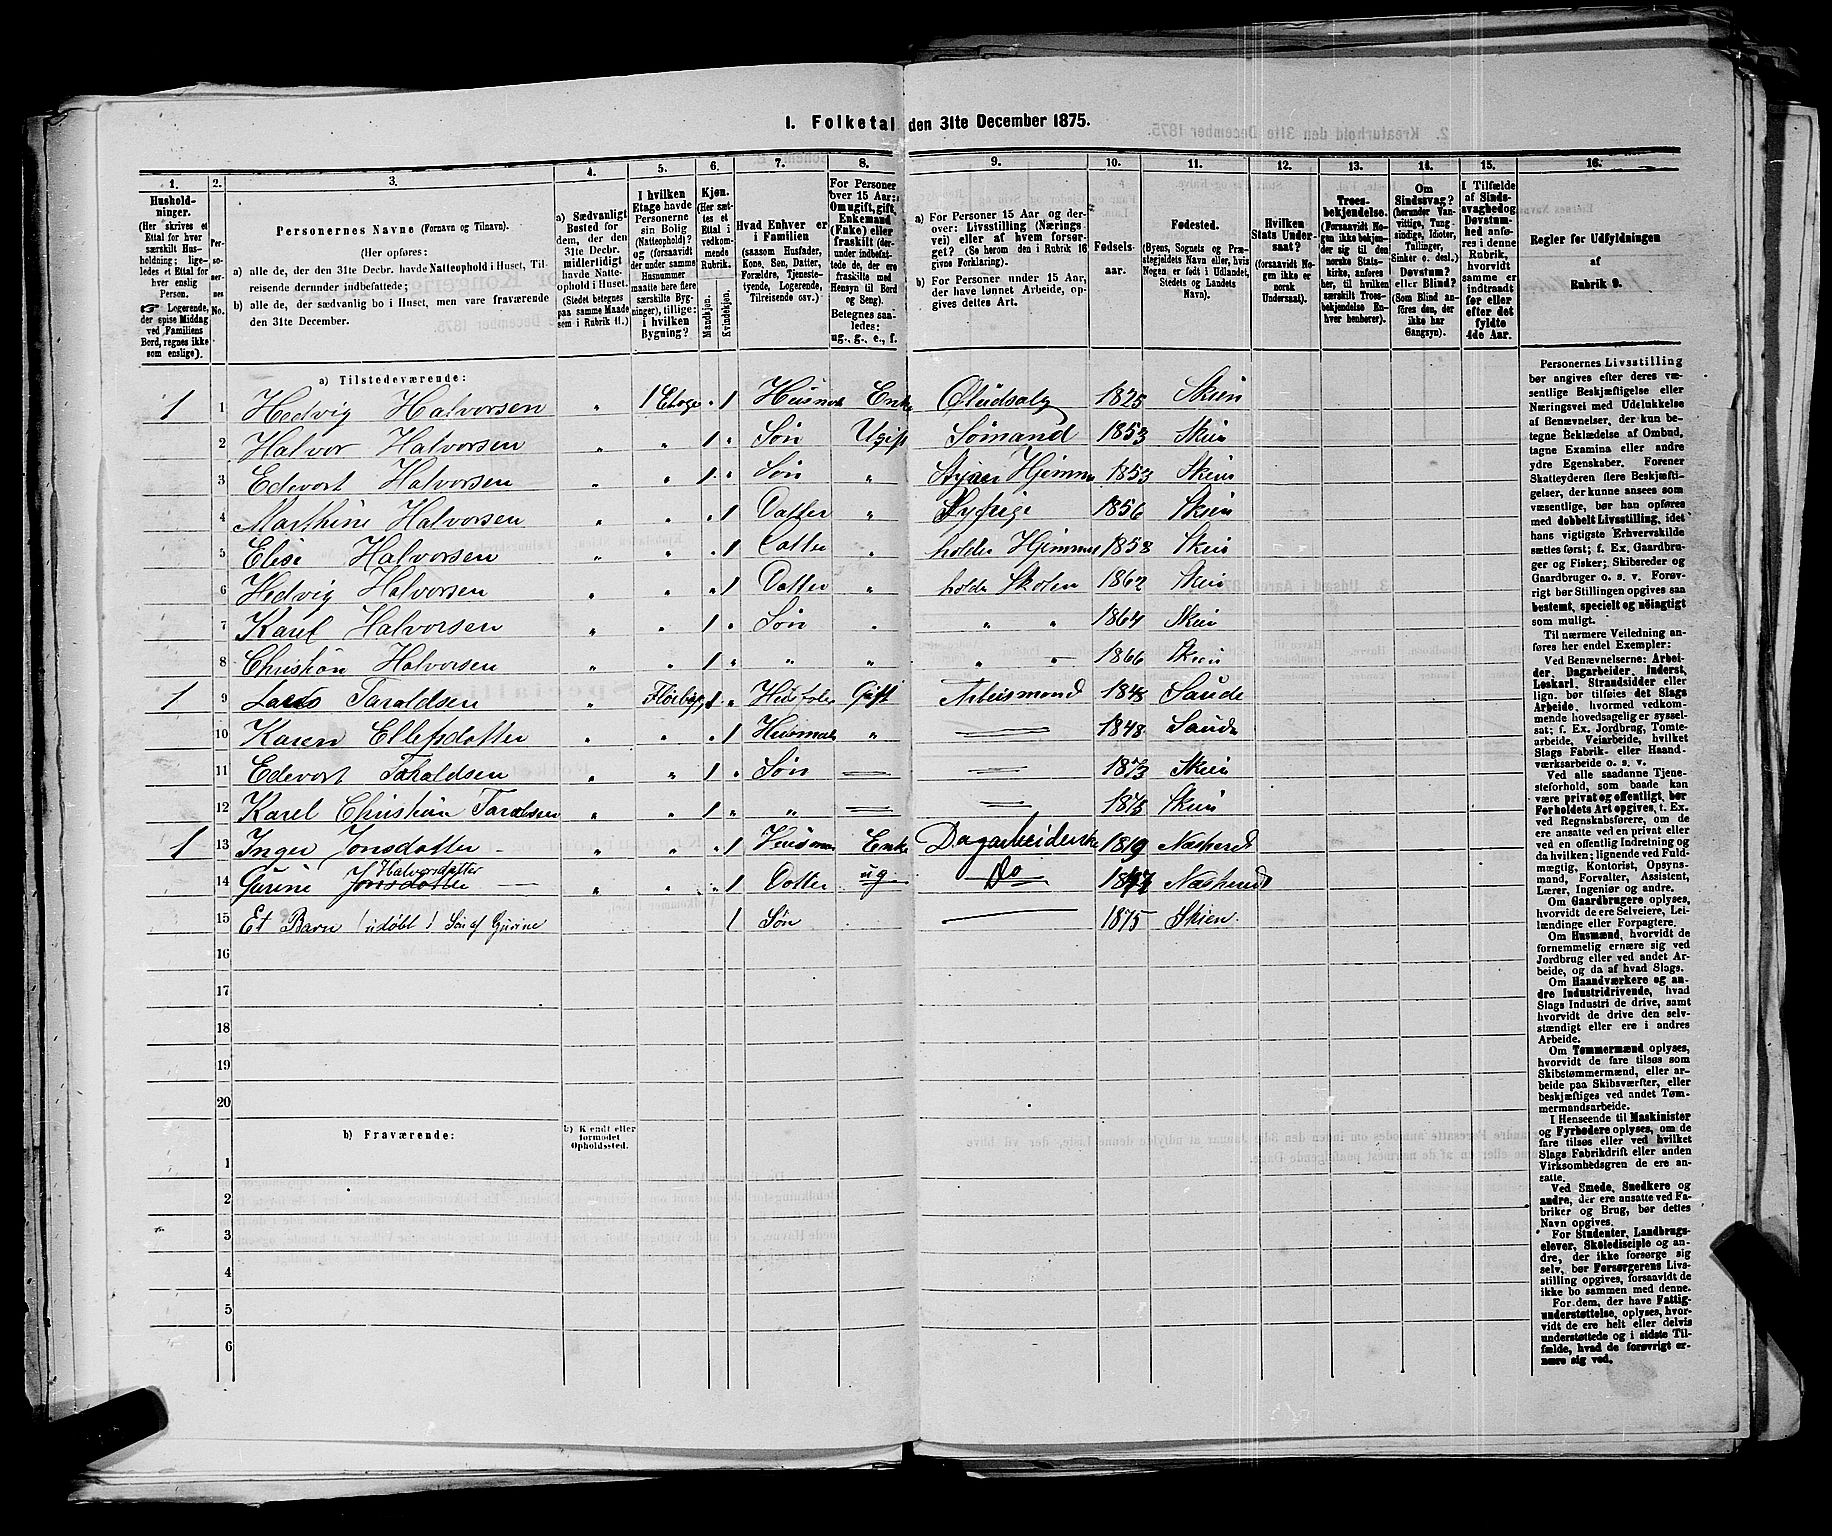 I. Folketal den 31te December 1875.
1. 2. 3. 4. 5. 6. 7. 8. 9. 10. 11. 12. 13. 14. 15. 16.
Husholdninger.
(Her skrives et Ettal for hver særskilt Husholdning; ligeledes et Ettal for hver enslig Person.
Logerende, der spise Middag ved Familiens Bord, regnes ikke som enslige).
Personernes No.
Personernes Navne (Fornavn og Tilnavn).
(Her opføres:
a) alle de, der den 31te Decbr. havde Natteophold i Huset, Tilreisende derunder indbefattede;
b) alle de, der sædvanlig bo i Huset, men vare fraværende den 31te December.
a) Sædvanligt Bosted for dem, der den 31te Decbr. midlertidigt havde Natteophold i Huset. (Stedet betegnes paa samme Maade som i Rubrik 11.)
I hvilken Etage havde Personerne sin Bolig (Natteophold)? og (forsaavidt der under samme Husnummer maatte høre flere særskilte Bygninger), tillige: i hvilken Bygning?
Kjøn. (Her sættes et Ettal i vedkommende Rubrik.
Mandkjøn. Kvindekjøn.
Hvad Enhver er i Familien (saasom Husfader, Kone, Søn, Datter, Forældre, Tjenestetyende, Logerende, Tilreisende osv.)
For Personer over 15 Aar: Om ugift, gift, Enkemand (Enke) eller fraskilt (derunder indbefattede de, der ere fraskilte med Hensyn til Bord og Seng). Betegnes saaledes: ug., g., e., f.
a) For Personer 15 Aar og derover: Livsstilling (Næringsvei) eller af hvem forsørget? (Se herom den i Rubrik 16 givne Forklaring).
b) For Personer under 15 Aar, der have lønnet Arbeide, opgives dettes Art.
Fødselsaar.
Fødested.
(Byens, Sognets og Præstegjeldets Navn eller, hvis Nogen er født i Udlandet, Stedets og Landets Navn).
Hvilken Stats Undersaat? (forsaavidt Nogen ikke er norsk Undersaat).
Troesbekjendelse. (Forsaavidt Nogen ikke bekjender sig til den norske Statskirke, anføres her, til hvilken særskilt Troesbekjendelse Enhver henhører).
Om Sindssvag? (herunder Vanvittige, Tungsindige, Idioter, Tullinger, Sinker o. desl.) Døvstum? eller Blind? (Som Blind anføres den, der ikke har Gangsyn).
I Tilfælde af Sindssvaghed og Døvstumhed anføres i denne Rubrik, hvorvidt samme er indtraadt før eller efter det fyldte 4de Aar.
Regler for Udfyldningen af Rubrik 9.
a) Tilstedeværende:
1 1 Hedvig Halvorsen " 1 Etage " 1 Husmod Enke Øludsalg 1825 Skien
2 Halvor Halvorsen " " 1 " Søn Ugift Sømand 1853 Skien
3 Edevart Halvorsen " " 1 " Søn " Hjemme 1853 Skien
4 Marthine Halvorsen " " " 1 Datter " Syepige 1856 Skien
5 Elise Halvorsen " " " 1 Datter " holder Hjemme 1858 Skien
6 Hedvig Halvorsen " " " 1 Datter " holder Skolen 1862 Skien
7 Karel Halvorsen " " 1 " Søn " " " 1864 Skien
8 Christian Halvorsen " " 1 " " " " " 1866 Skien
1 9 Lars Taraldsen " 1 " Husfader Gift Arbeismand 1848 Saude
10 Karen Ellefsdatter " " " 1 Husmod " 1848 Saude
11 Edevart Taraldsen " " 1 " Søn 1873 Skien
12 Karel Christian Taraldsen " " 1 " " 1875 Skien
1 13 Inger Jonsdatter " " " 1 Husmor Enke Dagarbeiderske 1819 Næsherred
14 Gurine Jonsdatter Halvorsdatter " " " 1 Datter ug Do 1847 Næsherred
15 Et Barn (udøbt) Søn af Gurine 1 Søn 1875 Skien.
16
17
18
19
20
b) Fraværende:
b) Kjendt eller formodet Opholdssted.
1
2
3
4
5
6
Personernes Livsstilling bør angives efter deres væsentlige Beskjæftigelse eller Næringsvei med Udelukkelse af Benævnelser, der kun betegne Beklædelse af Ombud, tagne Examina eller andre ydre Egenskaber. Forener Skatteyderen flere Beskjæftigelser, der kunne ansees som væsentlige, bør han opføres med dobbelt Livsstilling, idet hans vigtigste Erhvervskilde sættes først; f. Ex. Gaardbruger og Fisker; Skibsreder og Gaardbruger o. s. v. Forøvrigt bør Stillingen opgives saa bestemt, specielt og nøiagtigt som muligt.
Til nærmere Veiledning anføres her endel Exempler:
Ved Benævnelserne: Arbeider, Dagarbeider, Inderst, Løskarl, Strandsidder eller lign. bør tilføies det Slags Arbeide, hvormed vedkommende hovedsagelig er sysselsat; f. Ex. Jordbrug, Tomtearbeide, Veiarbeide, hvilket Slags Fabrik- eller Haandværksarbeide o. s. v.
Ved alle saadanne Tjenesteforhold, som baade kan være privat og offentligt, bør Forholdets Art opgives, t. Ex. ved Regnskabsførere, om de ere ansatte ved en privat eller ved en offentlig Indretning og da hvilken; lignende ved Fuldmægtig, Kontorist, Opsynsmand, Forvalter, Assistent, Lærer, Ingeniør og andre.
Om Gaardbrugere oplyses, hvorvidt de ere Selveiere, Leilændinge eller Forpagtere.
Om Husmænd, hvorvidt de fornemmelig ernære sig ved Jordbrug eller ved andet Arbeide, og da af hvad Slags.
Om Haandværkere og andre Industridrivende, hvad Slags Industri de drive, samt hvorvidt de drive den selvstændigt eller ere i andres Arbeide.
Om Tømmermænd oplyses, hvorvidt de fare tilsøs som Skibstømmermænd, eller arbeide paa Skibsværfter, eller beskjæftiges ved andet Tømmermandsarbeide.
I Henseende til Maskinister og Fyrbødere oplyses, om de fare tilsøs eller ved hvilket Slags Fabrikdrift eller anden Virksomhedsgren de ere ansatte.
Ved Smede, Snedkere og andre, der ere ansatte ved Fabriker og Brug, bør dettes Navn opgives.
For Studenter, Landbrugselever, Skoledisciple og andre, der ikke forsørge sig selv, bør Forsørgerens Livsstilling opgives, forsaavidt de ikke bo sammen med denne.
For dem, der have Fattigunderstøttelse, oplyses, hvorvidt de ere helt eller delvis understøttede og i sidste Tilfælde, hvad de forøvrigt ernære sig ved.